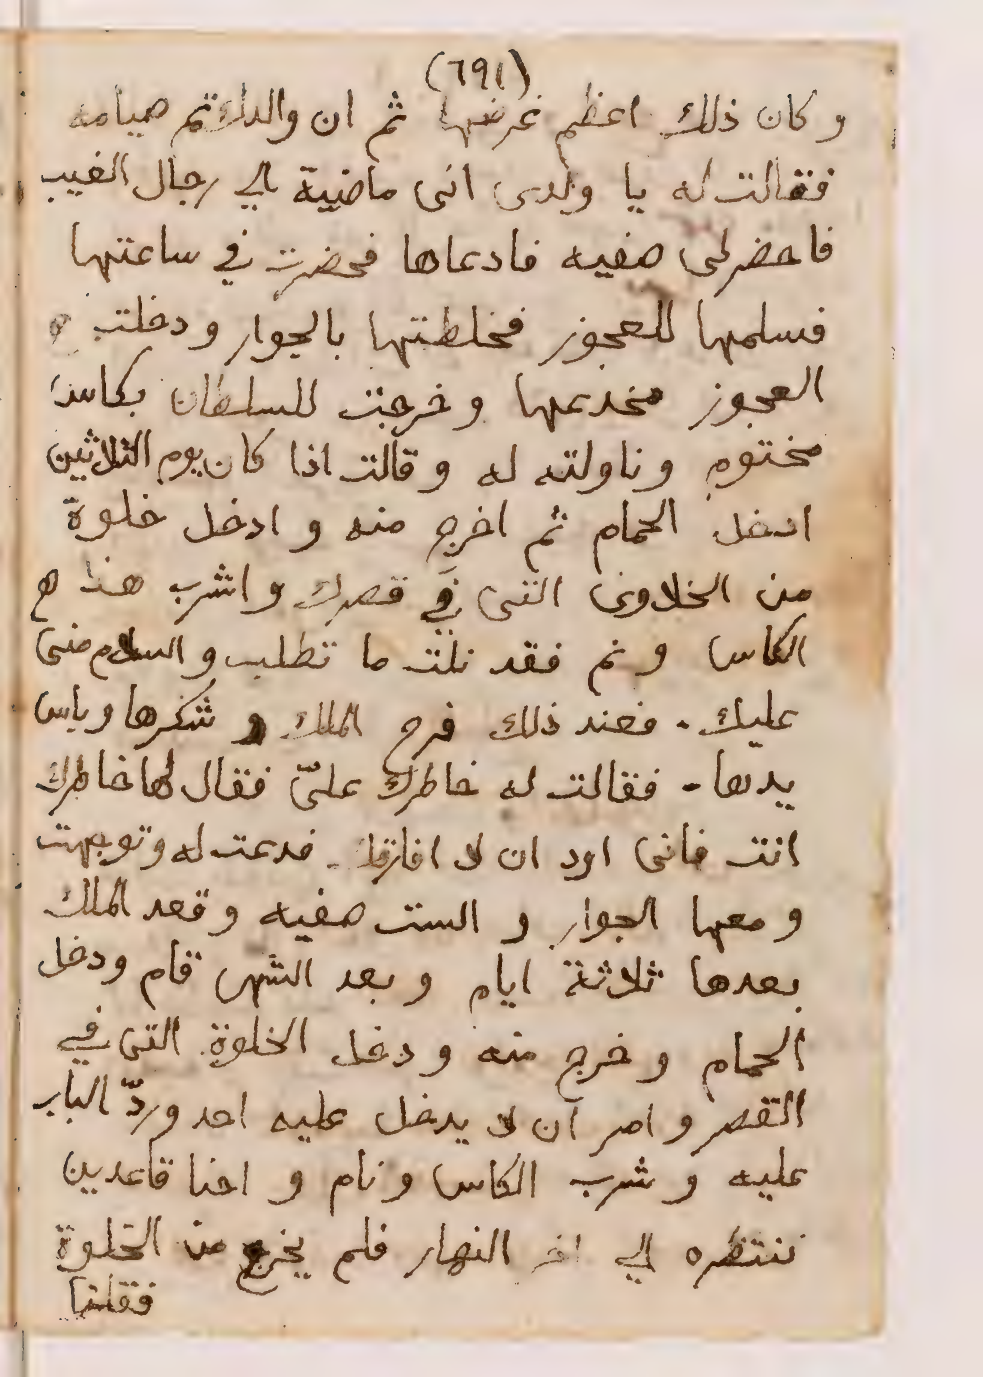 (٦٩١)
وكان ذلك اعظم غرضها ثم ان والدك تم صيامه
فقالت له يا ولدى انى ماضية الي رجال الغيب
فاحضر لى صفيه فادعاها فحضرت في ساعتها
فسلمها للعجوز فخلطتها بالجوار ودخلت
العجوز مخدعها وخرجت للسلطان بكاس
مختوم وناولته له وقالت اذا كان يوم الثلاثين
ادخل الحمام ثم اخرج منه وادخل خلوة
من الخلاوى التى في قصرك واشرب هذا
الكاس ونم فقد نلت ما تطلب والسلام منى
عليك . فعند ذلك فرح الملك و شكرها وباس
يدها . فقالت له خاطرك علىّ فقال لها خاطرك
انت فانى اود ان لا افارقك . فدعت له وتوجهت
ومعها الجوار و الست صفيه وقعد الملك
بعدها ثلاثة ايام وبعد الشهر قام ودخل
الحمام وخرج منه ودخل الخلوة التى في
القصر وامر ان لا يدخل عليه احد وردّ الباب
عليه وشرب الكاس ونام و احنا قاعدين
ننتظره الي اخر النهار فلم يخرج من الخلوة
فقلنا